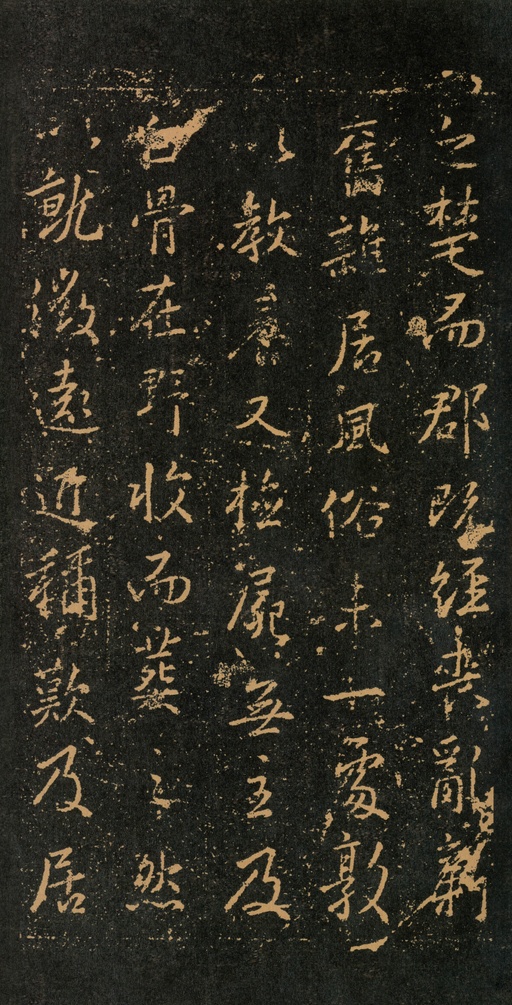 之楚而郡既經喪亂新
舊雜居風俗未一處敦
以教養又檢屍無主及
白骨在野收而葬之然
以就徵遠近稱歎及居